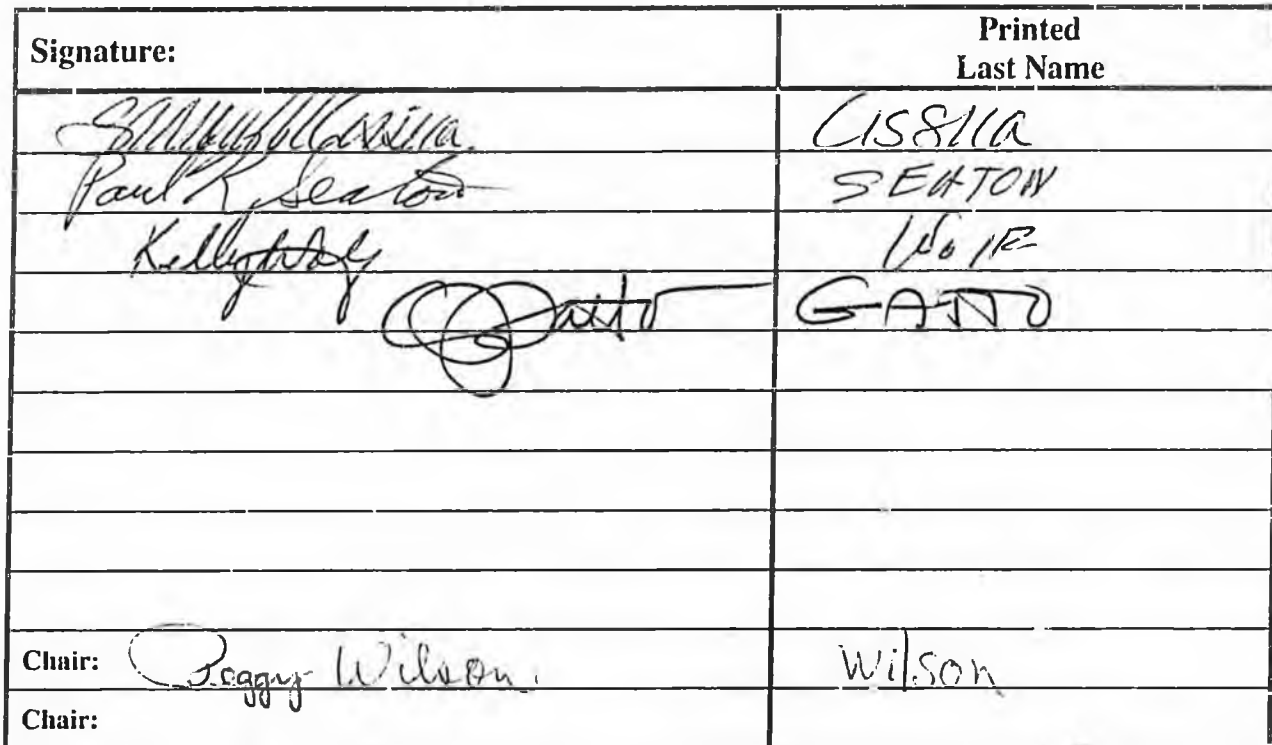 Signature: Printed
Last Name
Cissna
Paul K. Seaton SEATON
Kelly
Gatto GATTO
Chair: Peggy Wilson. Wilson
Chair: